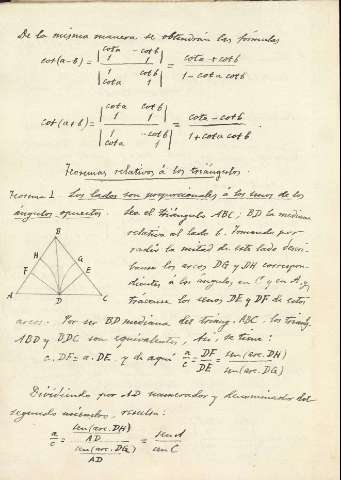 De la misma manera se obtendrán las fórmulas
cot(a-b) = | cot a  -cot b ; 1  1 | / | 1  cot b ; cot a  1 | = (cot a + cot b) / (1 - cot a cot b)
cot(a+b) = | cot a  cot b ; 1  1 | / | 1  -cot b ; cot a  1 | = (cot a - cot b) / (1 + cot a cot b)
Teoremas relativos á los triángulos.
Teorema I.- Los lados son proporcionales á los senos de los
ángulos opuestos. Sea el triángulo ABC; BD la mediana
relativa al lado b. Tomando por
radio la mitad de este lado descri-
banse los arcos DG y DH correspon-
dientes á los ángulos en C y en A, y
trácense los senos DE y DF de estos
B
H
G
F
E
A
D
C
arcos. Por ser BD mediana del triáng. ABC, los triáng.
ABD y DDC son equivalentes, Así, se tiene:
c. DF = a. DE, y de aquí a/c = DF/DE = sen(arc. DH) / sen(arc. DG)
Dividiendo por AD numerador y denominador del
segundo miembro, resulta:
a/c = (sen(arc. DH) / AD) / (sen(arc. DG) / AD) = sen A / sen C